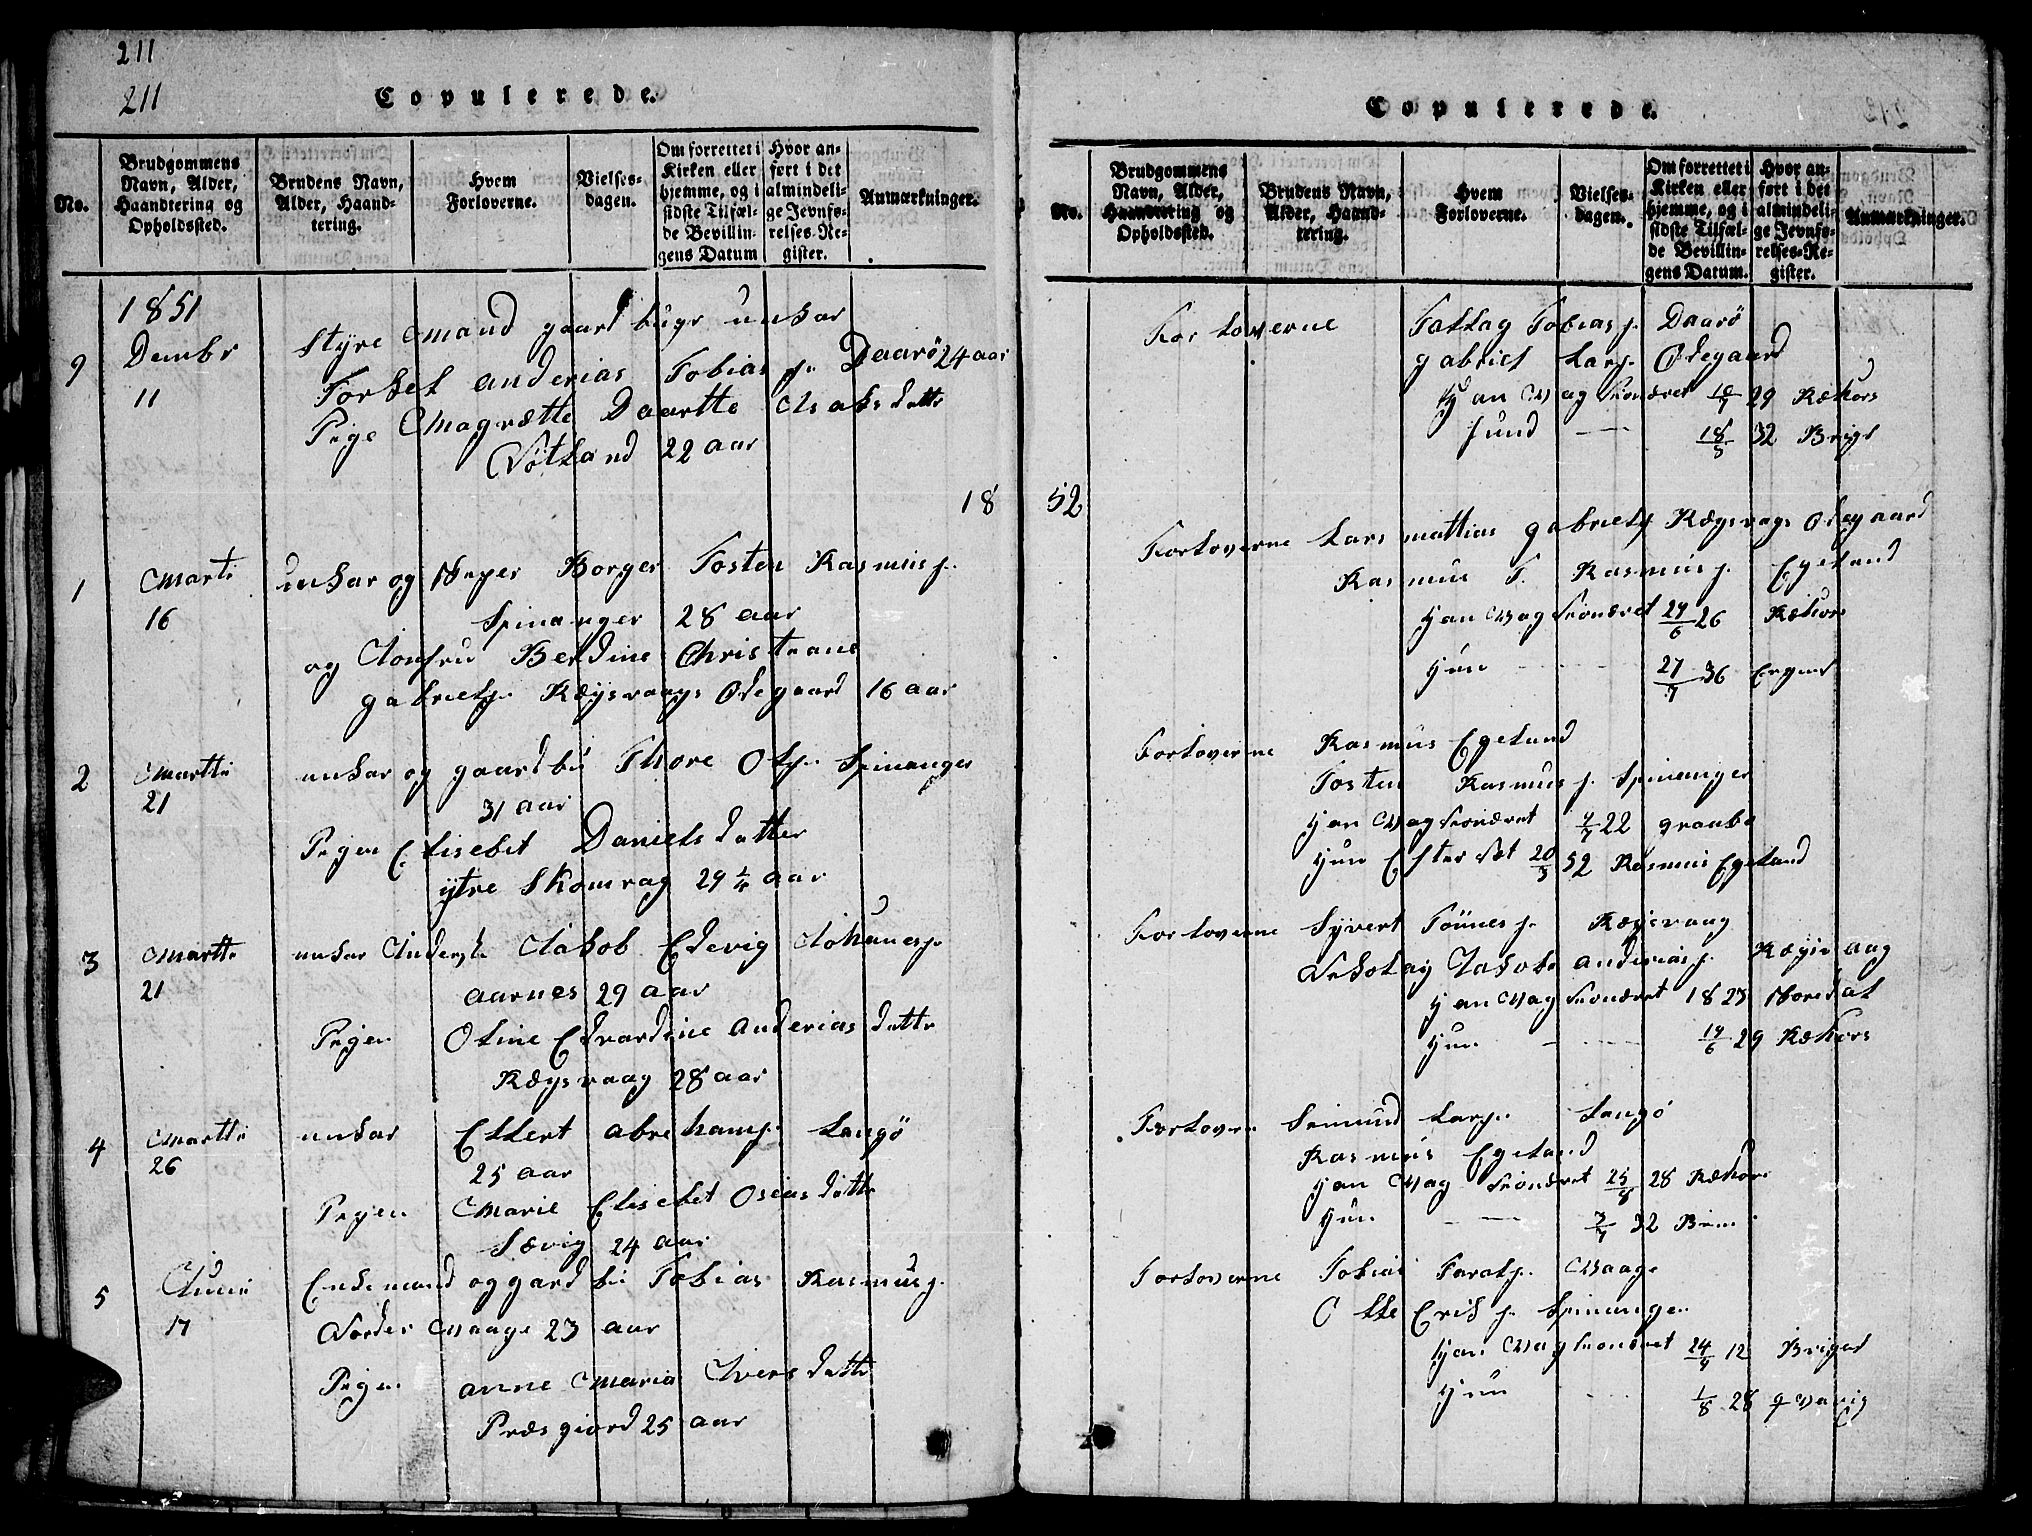 211
211
Copulerede.
No.
Brudgommens Navn, Alder, Haandtering og Opholdssted.
Brudens Navn, Alder, Haandtering.
Hvem Forloverne.
Vielsesdagen.
Om forrettet i Kirken eller hjemme, og i sidste Tilfælde Bevillingens Datum
Hvor anført i det almindelige Jevnførelses-Register.
Anmærkninger.
1851
Styre mand gaard bugr unkar
9 Dembr
Torkel anderias Tobias f. Daarø 24 aar
11
Pige Magrætte Daartte Isaks datte
22 aar
18
1 Marti unkar og Borger Tosten Rasmus f.
16 Spinanger 28 aar
og Jomfru Berdine Christiane
gabrielf. Rægevaags Ødegaard 16 aar
2 Martti unkar og gaard bu Thore Olf. Spinanger
21 31 aar
Pigen Elisebet Daniels datter
ytre Skomrag 29 1/4 aar
3 Martti unkar Jakob Edevig Johanesf.
21 aarnes 29 aar
Pigen Oline Edvardine anderias datte
Rægevaag 28 aar
4 Martti unkar Ellert abrehamf. Langø
26 25 aar
Pigen Marie Elisebet Osias datte
Sævig 24 aar
5 Juni Enkemand og gard bu Tobias Rasmusf.
17 Norder Waage 23 aar
Pigen anne Maria Ivers datte
Præsgiord 25 aar
Copulerede.
No.
Brudgommens Navn, Alder, Haandtering og Opholdssted.
Brudens Navn, Alder, Haandtering.
Hvem Forloverne.
Vielsesdagen.
Om forrettet i Kirken eller hjemme, og i sidste Tilfælde Bevillingens Datum.
Hvor anført i det almindelige Jevnførelses-Register.
Anmærkninger.
Forloverne Tallag Tobias f. Daarø
gabriel Larf. Ødegaard
Han Wag sionæret 10/7 29 Rækors
hund — 18/5 32
52
Forloverne Lars mattias gabrielf. Rægevags Ødegaard
Rasmus T. Rasmus f. Egeland
Han Wag sionæret 24/6 26 Rækors
Hun 27/7 36
Forloverne Rasmus Egeland
Tosten Rasmus f. Spinanger
Han Wag sionæret 4/7 22
Hun Efter 20/3 52 Rasmus Egeland
Forloverne Syvert Tønnes f. Rægevaag
Nekolay Jakob anderias f. Rægevaag
Han Wag sionæret 1823
Hun 14/6 29 Rækors
Forlovere Semund Larf. Langø
Rasmus Egeland
Han Wag sionæret 25/8 28 Rækors
Hun — 3/7 32
Forloverne Tobias Taralf. Waage
Olle Erik f. Spinanger
Han Wag sionæret 24/9 12
Hun 1/8 28